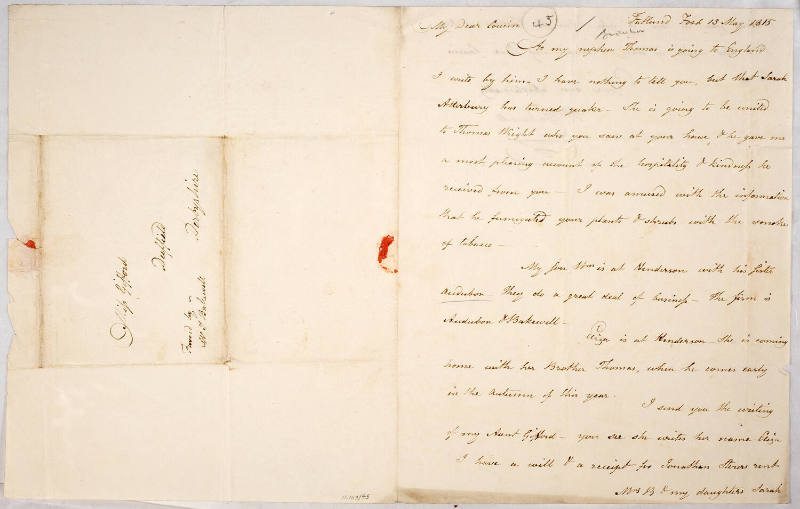 Miss Gifford
Duffield
Derbyshire
Favd by
Mr T Bakewell
45
My Dear Cousin
Fatland Ford 13 May 1815
As my nephew Thomas is going to England
I write by him. I have nothing to tell you, but that Sarah
Atterbury has turned quaker – She is going to be united
to Thomas Wright who you saw at your house, & he gave me
a most pleasing account of the hospitality & kindness he
received from you – I was amused with the information
that he fumigated your plants & shrubs with the smoke
of tobacco –
My son Wm is at Henderson with his Sister
Audubon – they do a great deal of business – The firm is
Audubon & Bakewell –
Eliza is at Henderson – She is coming
home with her Brother Thomas, when he comes early
in the Autumn of this year.
I send you the writing
of my Aunt Gifford – you see she writes her name Eliza
I have a will & a receipt for Jonathan rent
Mrs B & my daughters Sarah